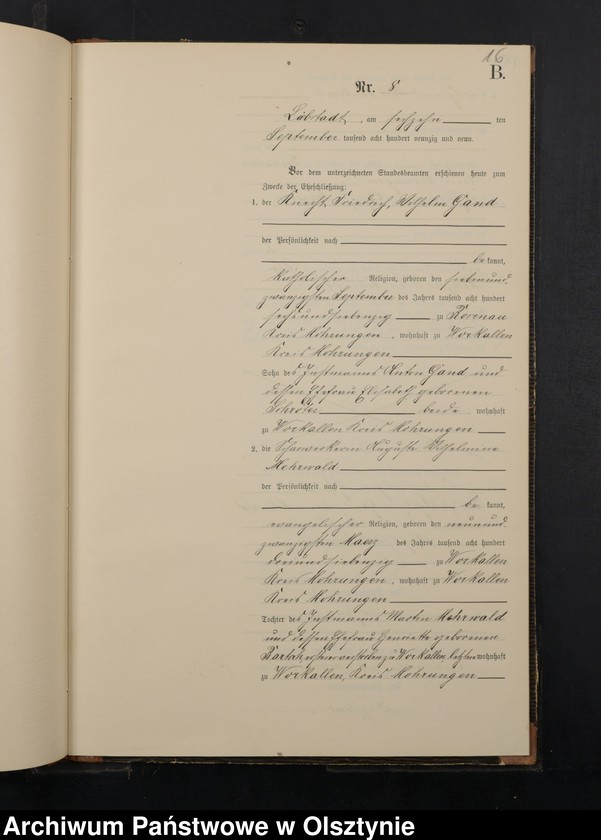 16
B.
Nr. 8
Liebstadt, am sechzehn ten
September tausend acht hundert neunzig und neun.
Vor dem unterzeichneten Standesbeamten erschienen heute zum
Zwecke der Eheschließung:
1. der Knecht Friedrich, Wilhelm Gand
der Persönlichkeit nach
be kannt,
katholischer Religion, geboren den siebenund-
zwanzigsten September des Jahres tausend acht hundert
sechsundsiebenzig zu
Kreis Mohrungen, wohnhaft zu Workallen
Kreis Mohrungen
Sohn des Instmanns Anton Gand und
dessen Ehefrau Elisabeth geborenen
Schröter beide wohnhaft
zu Workallen Kreis Mohrungen
2. die Scharwerkerin Auguste Wilhelmine
Mehrwald
der Persönlichkeit nach
be kannt,
evangelischer Religion, geboren den neunund-
zwanzigsten Maerz des Jahres tausend acht hundert
dreiundsiebenzig zu Workallen
Kreis Mohrungen, wohnhaft zu Workallen
Kreis Mohrungen
Tochter des Instmanns Martin Mehrwald
und dessen Ehefrau Henriette geborenen
ersterer verstorben zu Workallen, letztere wohnhaft
zu Workallen, Kreis Mohrungen
Archiwum Państwowe w Olsztynie